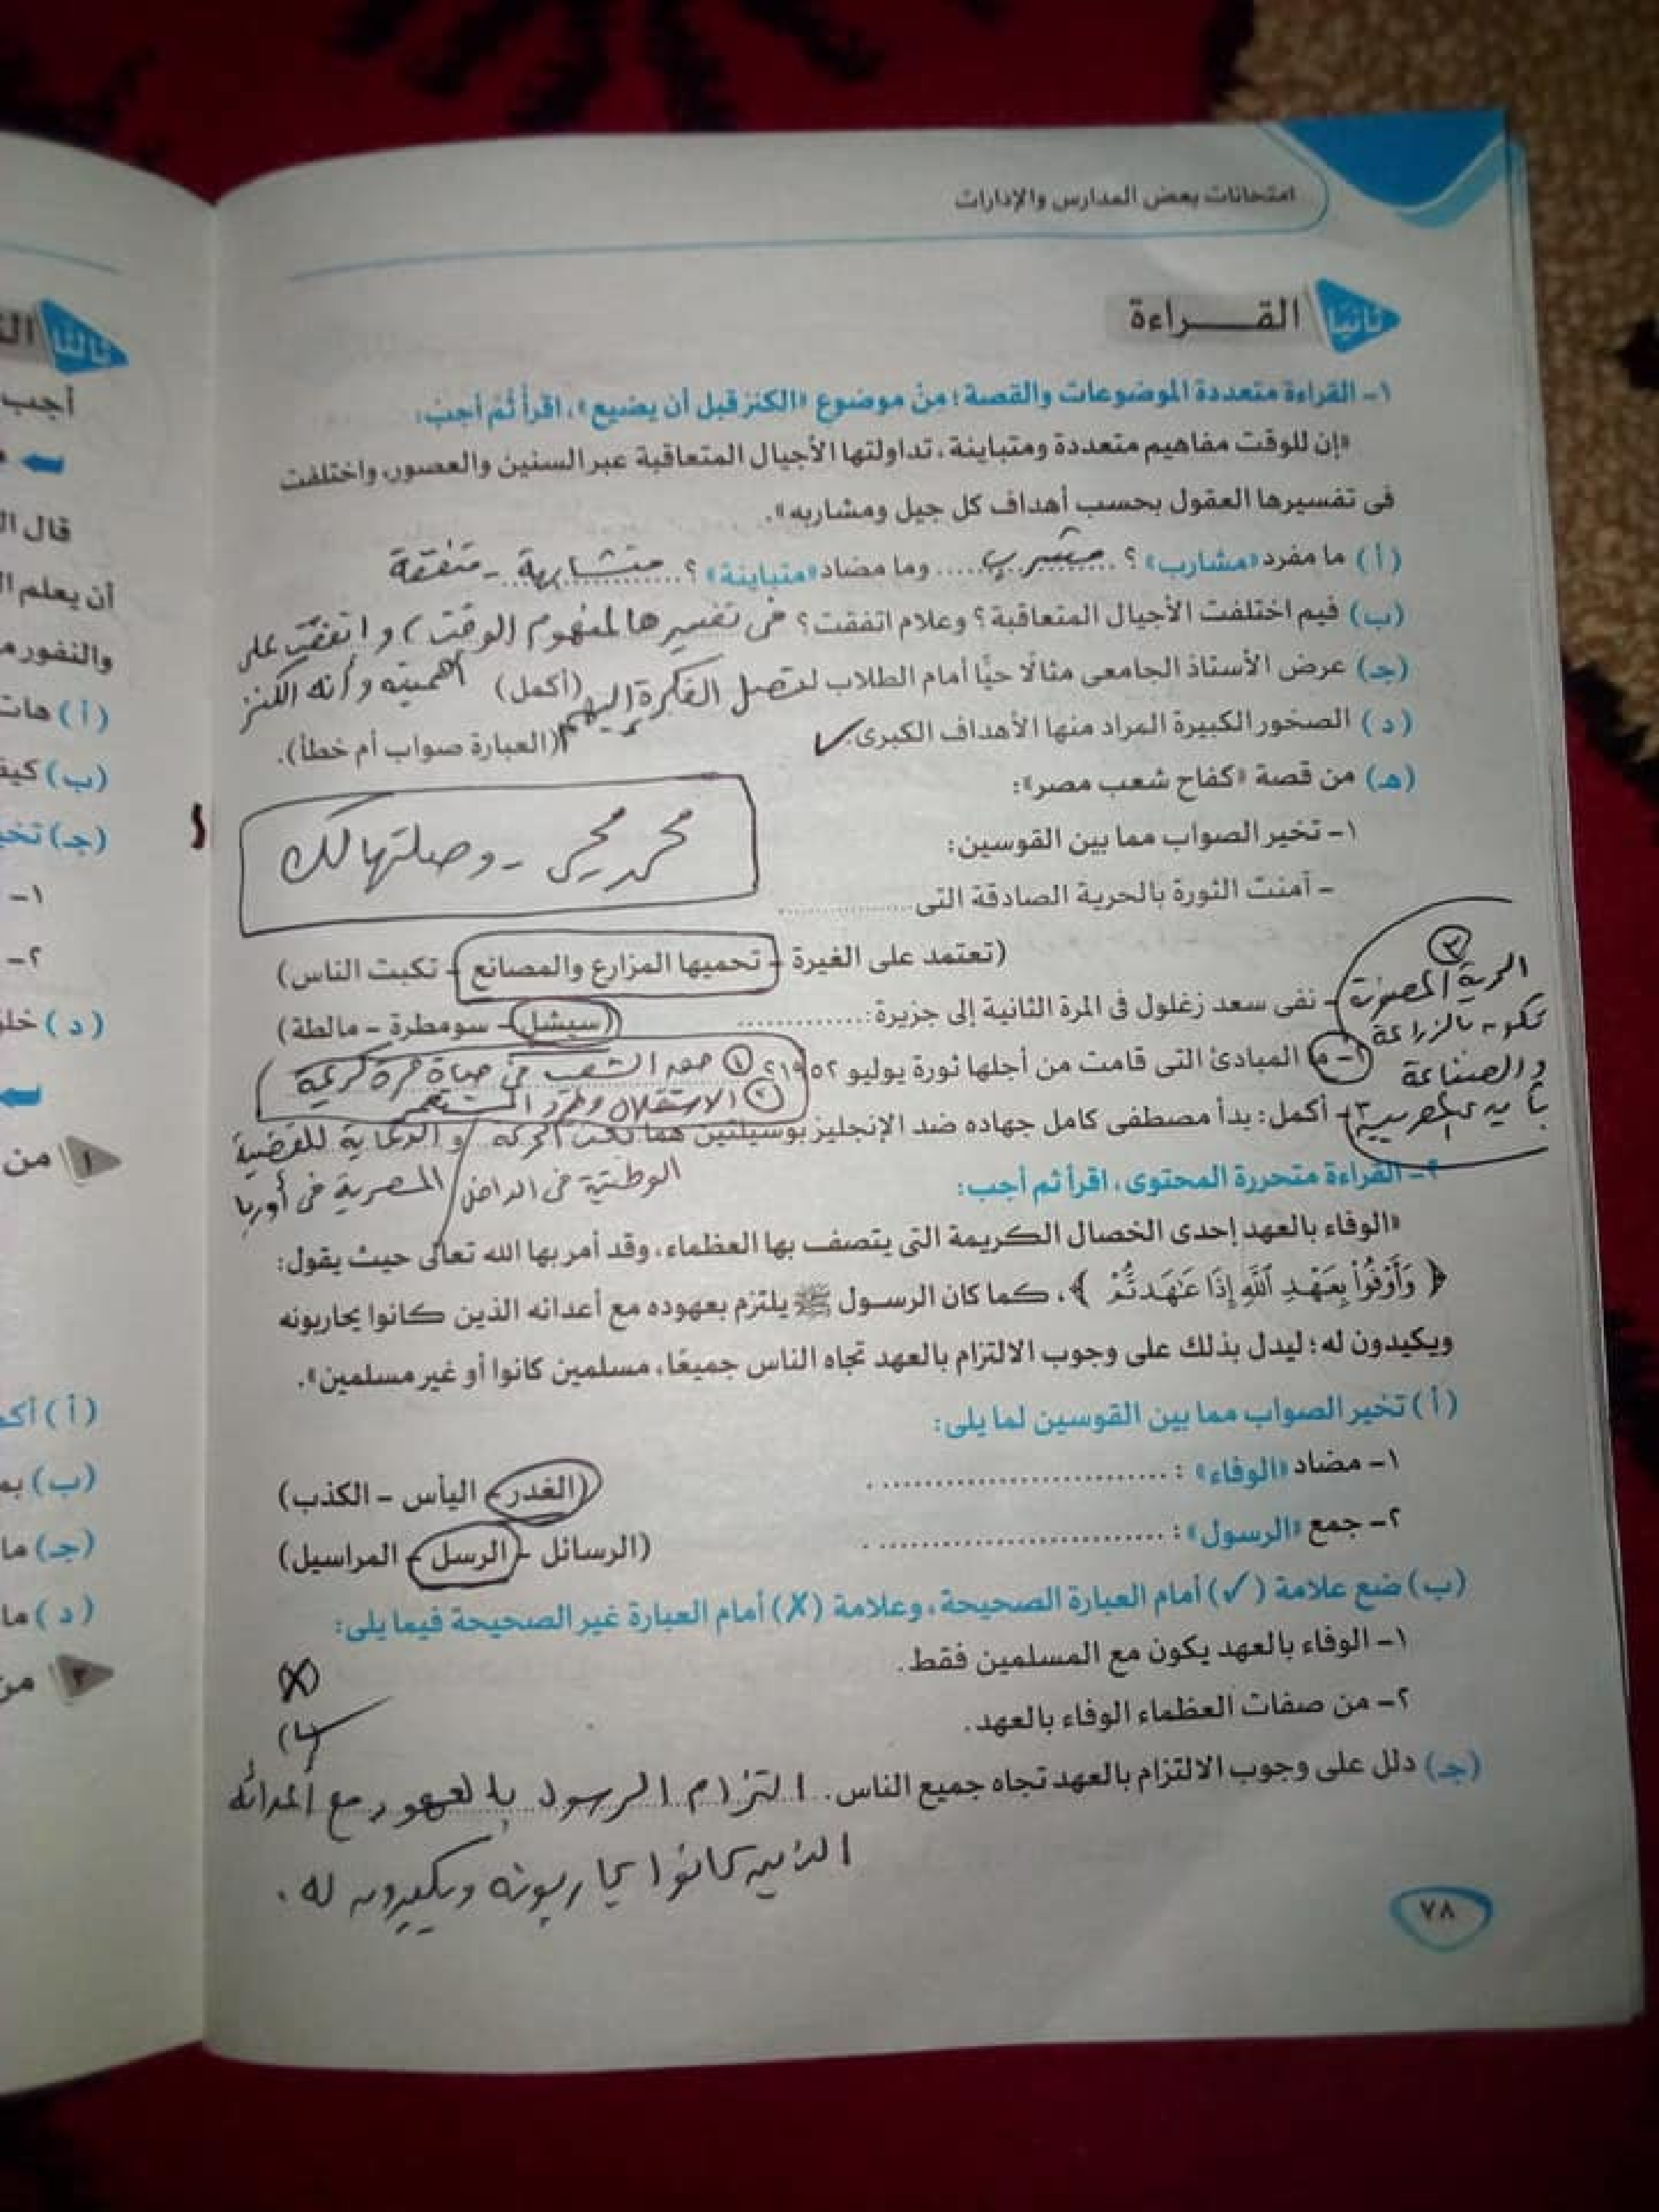 امتحانات بعض المدارس والإدارات
ثانيا القـــراءة
١- القراءة متعددة الموضوعات والقصة؛ من موضوع «الكنز قبل أن يضيع»، اقرأ ثم أجب:
«إن للوقت مفاهيم متعددة ومتباينة، تداولتها الأجيال المتعاقبة عبر السنين والعصور، واختلفت
فى تفسيرها العقول بحسب أهداف كل جيل ومشاربه».
(أ) ما مفرد «مشارب» ؟ مشرب وما مضاد «متباينة» ؟ متشابهة - متفقة
(ب) فيم اختلفت الأجيال المتعاقبة؟ وعلام اتفقت؟ فى تفسيرها لمفهوم (الوقت) واتفقت على
أهميته وأنه الكنز
(جـ) عرض الأستاذ الجامعى مثالًا حيًّا أمام الطلاب لتصل الفكرة إليهم (أكمل)
(د) الصخور الكبيرة المراد منها الأهداف الكبرى. ✓ (العبارة صواب أم خطأ).
(هـ) من قصة «كفاح شعب مصر»:
١- تخير الصواب مما بين القوسين:
محمد محيى - وصلتها لك
- آمنت الثورة بالحرية الصادقة التى ..............
(تعتمد على الغيرة - تحميها المزارع والمصانع - تكبت الناس)
- نفى سعد زغلول فى المرة الثانية إلى جزيرة: ..............
(سيشل - سومطرة - مالطة)
٢- ما المبادئ التى قامت من أجلها ثورة يوليو ١٩٥٢؟ ① حق الشعب فى حياة حرة كريمة
② الاستقلال وطرد المستعمر
③ الحرية المصونة
تكون بالزراعة
والصناعة
بأيدى المصريين
٣- أكمل: بدأ مصطفى كامل جهاده ضد الإنجليز بوسيلتين هما الحركة / والدعاية للقضية
الوطنية فى الداخل / المصرية فى أوربا
٢- القراءة متحررة المحتوى، اقرأ ثم أجب:
«الوفاء بالعهد إحدى الخصال الكريمة التى يتصف بها العظماء، وقد أمر بها الله تعالى حيث يقول:
﴿ وَأَوْفُوا۟ بِعَهْدِ ٱللَّهِ إِذَا عَٰهَدتُّمْ ﴾، كما كان الرسول ﷺ يلتزم بعهوده مع أعدائه الذين كانوا يحاربونه
ويكيدون له؛ ليدل بذلك على وجوب الالتزام بالعهد تجاه الناس جميعًا، مسلمين كانوا أو غير مسلمين».
(أ) تخير الصواب مما بين القوسين لما يلى:
١- مضاد «الوفاء» : .............. (الغدر - اليأس - الكذب)
٢- جمع «الرسول» : .............. (الرسائل - الرسل - المراسيل)
(ب) ضع علامة (✓) أمام العبارة الصحيحة، وعلامة (✗) أمام العبارة غير الصحيحة فيما يلى:
١- الوفاء بالعهد يكون مع المسلمين فقط. (✗)
٢- من صفات العظماء الوفاء بالعهد. (✓)
(جـ) دلل على وجوب الالتزام بالعهد تجاه جميع الناس. التزام الرسول بالعهود مع أعدائه
الذين كانوا يحاربونه ويكيدون له.
٧٨
ثالثا
أجب
قال
أن يعلم
والنفور
(أ) هات
(ب) كيف
(جـ)
١-
٢-
(د)
١ من
(أ)
(ب)
(جـ) ما
(د) ما
٢ من